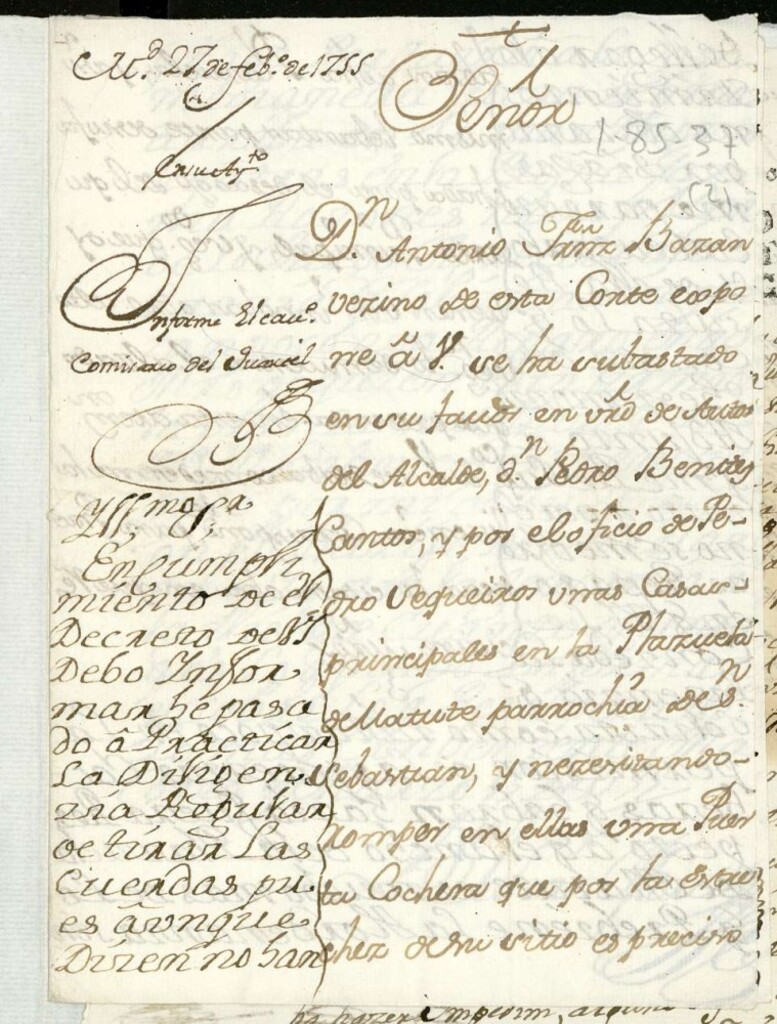 M.ᵈ 27 de feb.º de 1755
En su Ay.ᵗᵒ
Informe El cau.º
Comisario del Quartel
Yll.ᵐᵒ S.ʳ
En Cumpli
miento de el
Decreto de V S
Debo Infor
mar he pasa
do â Practicar
La Diligen
zia Regular
de tirar Las
Cuerdas pu
es âvnque
Dizen no han
Señor
1-85-37
(2)
D.ⁿ Antonio Frnz Bazan
vezino de esta Corte espo
ne â V. se ha subastado
en su fauor en vrd de Autos
del Alcalde, d.ⁿ Pedro Benites
Cantos, y por el oficio de Pe-
dro Vequeiros vnas Casas-
principales en la Plazuela
de Matute parrochia de S.ⁿ
Sebastian, y nezesitando-
romper en ellas vna Puer
ta Cochera que por la estre
chez de su sitio es preciso